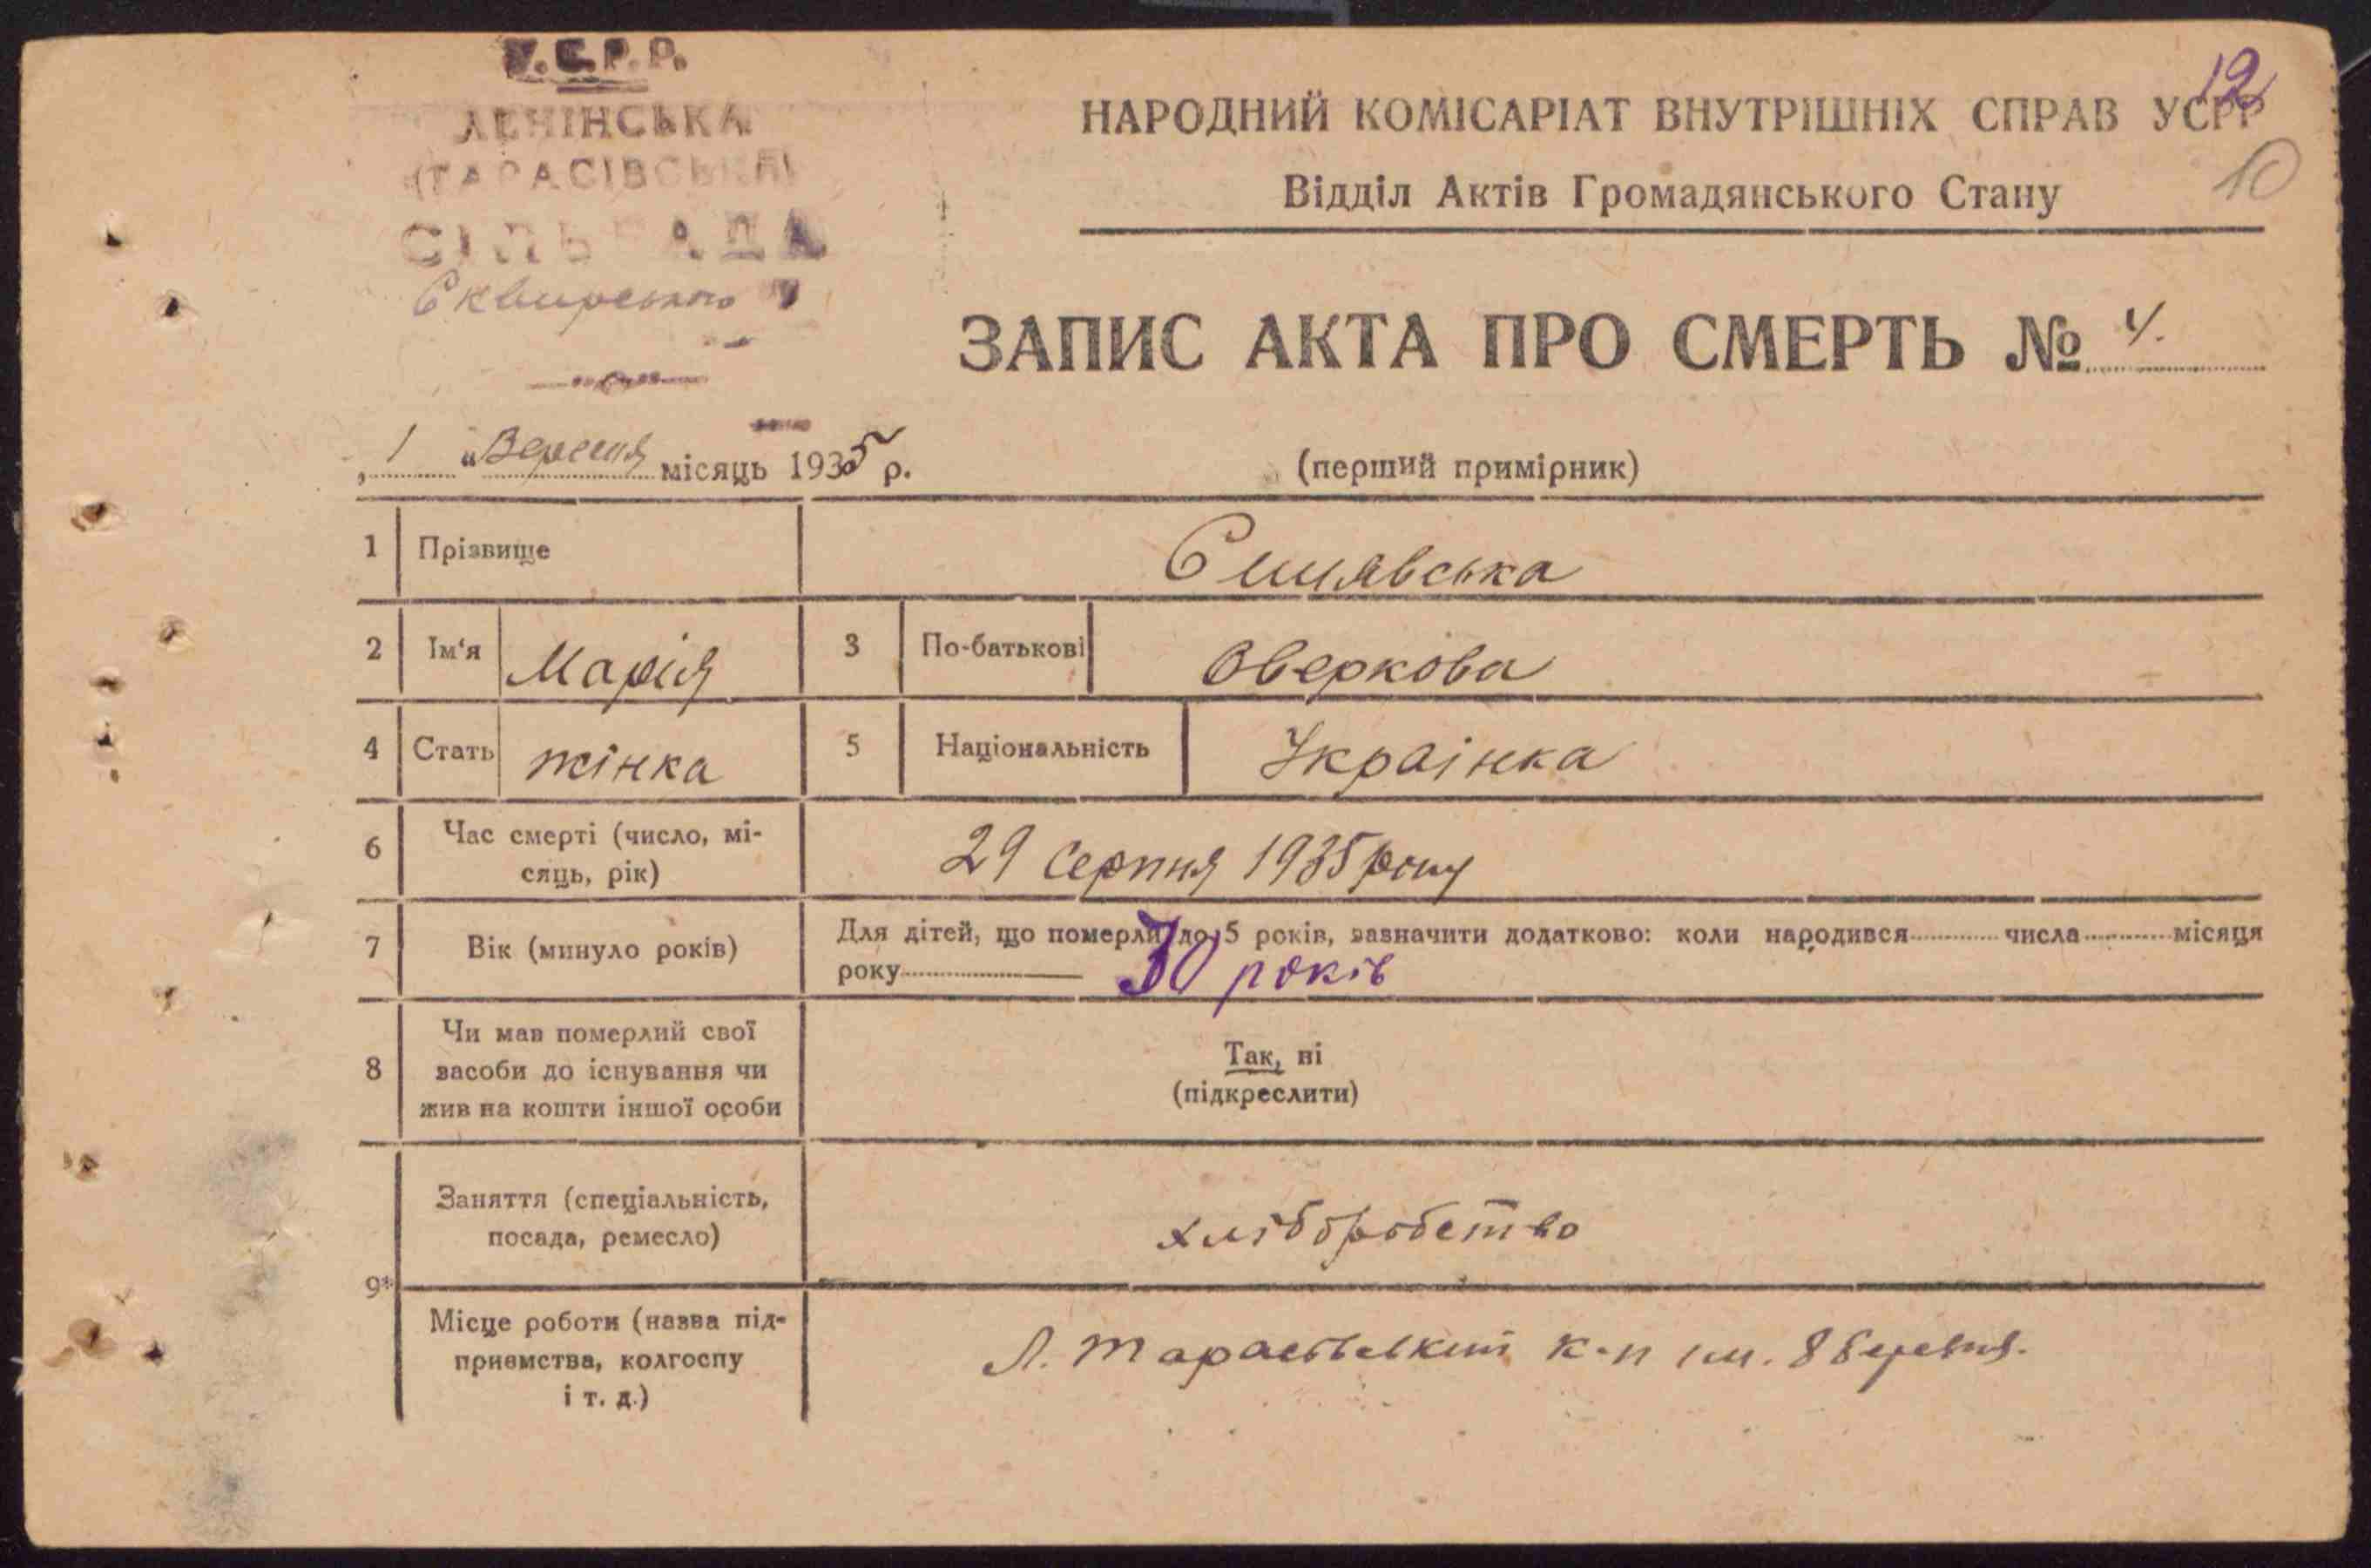 У.С.Р.Р.
ЛЕНІНСЬКА
(ТАРАСІВСЬКА)
СІЛЬРАДА
Сквирського
12
НАРОДНИЙ КОМІСАРІАТ ВНУТРІШНІХ СПРАВ УСРР
10
Відділ Актів Громадянського Стану
ЗАПИС АКТА ПРО СМЕРТЬ № 4.
„ 1 " Вересня місяць 1935 р.
(перший примірник)
1 Прізвище
2 Ім'я Марія 3 По-батькові Оверкова
4 Стать жінка 5 Національність Українка
6 Час смерті (число, мі-
сяць, рік) 29 серпня 1935 року
7 Вік (минуло років) Для дітей, що померли до 5 років, зазначити додатково: коли народився числа місяця
року 30 років
8 Чи мав померлий свої
засоби до існування чи
жив на кошти іншої особи
Так, ні
(підкреслити)
9*
Заняття (спеціальність,
посада, ремесло) хліборобство
Місце роботи (назва під-
приємства, колгоспу
і т. д.) Л. Тарасівський к-п ім. 8 березня.